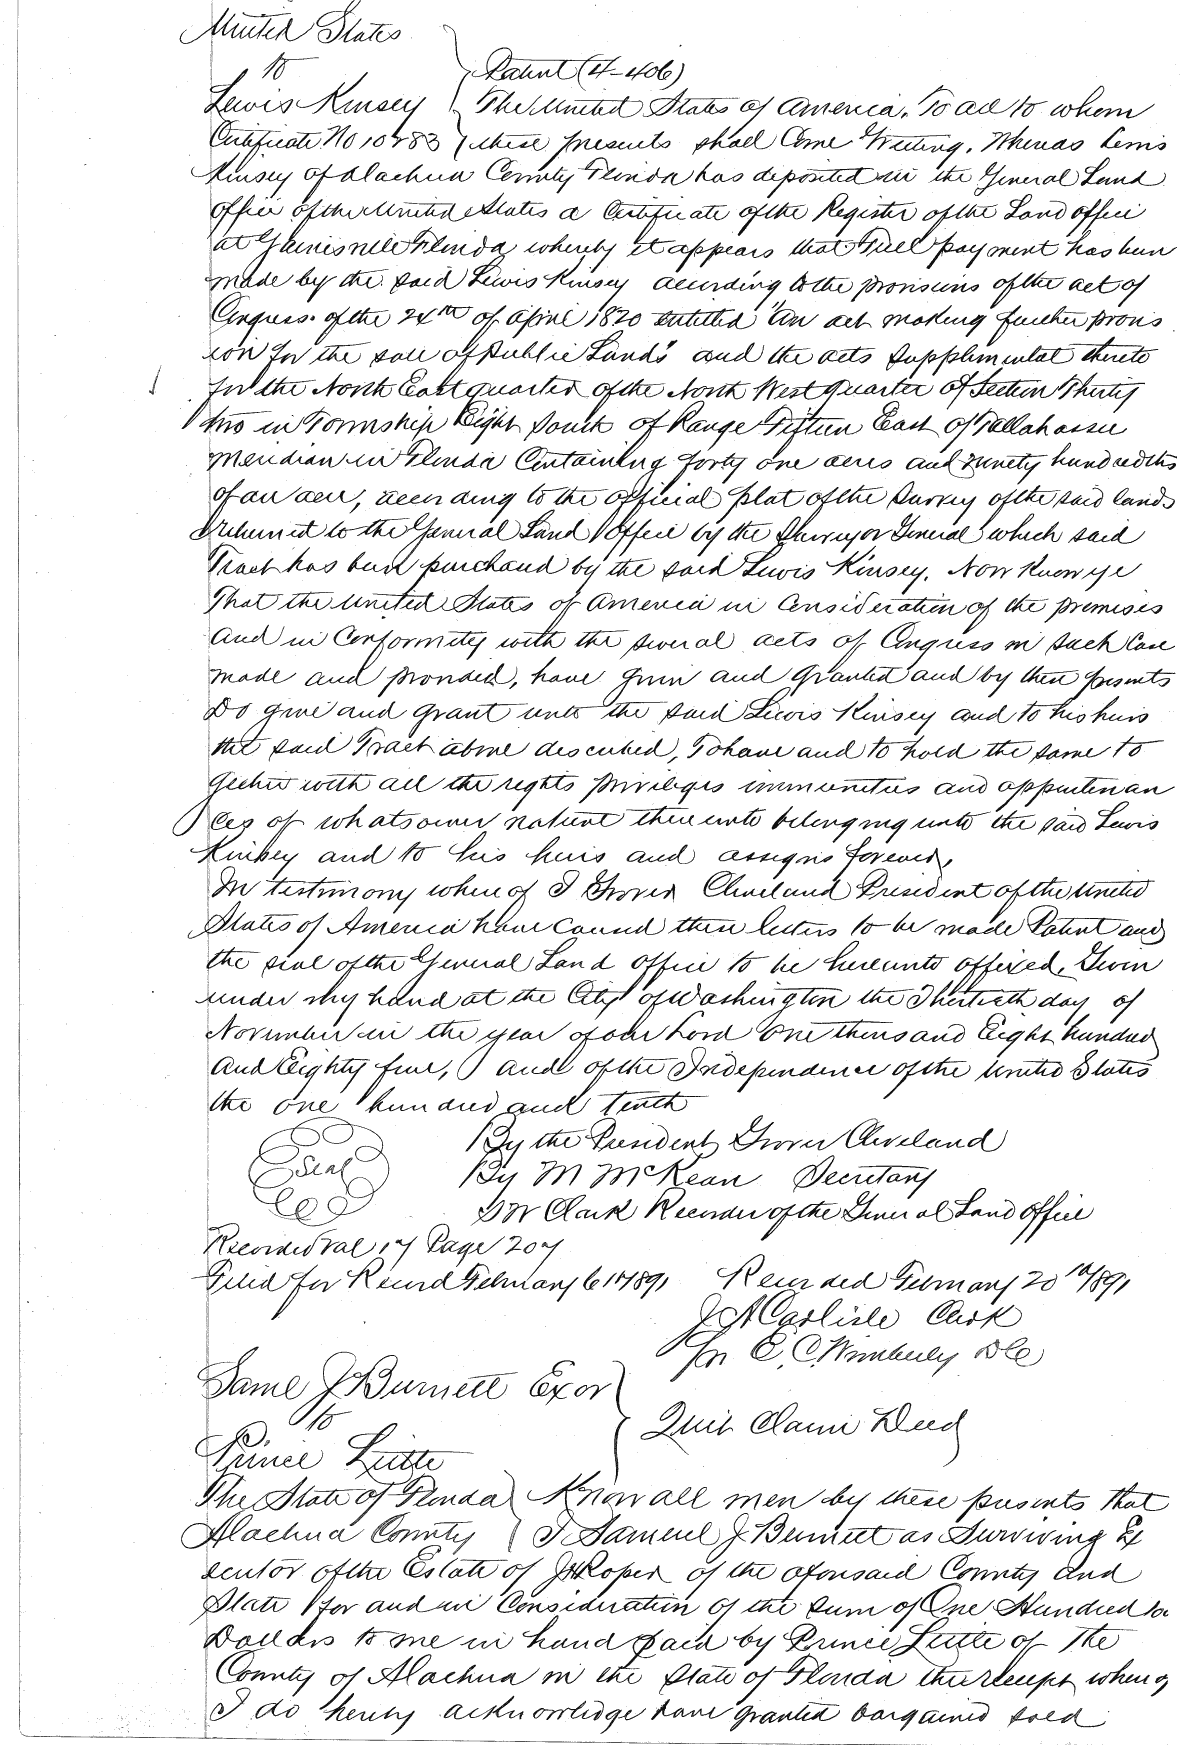 United States
to
Patent (4-406)
Lewis Kinsey The United States of America. To all to whom
Certificate No 10283 these presents shall Come Greeting. Whereas Lewis
Kinsey of Alachua County Florida has deposited in the General Land
office of the United States a Certificate of the Register of the Land office
at Gainesville Florida whereby it appears that Full payment has been
made by the said Lewis Kinsey according to the provisions of the act of
Congress. of the 24th of April 1820 entitled "An act making further provis
ion for the sale of Public Lands" and the acts supplimental thereto
for the North East quarter of the North West quarter of Section Thirty
two in Township Eight South of Range Fifteen East of Tallahassee
Meridian in Florida Containing forty one acres and ninety hundredths
of an acre, according to the official plat of the Survey of the said lands
returned to the General Land Office by the Surveyor General which said
Tract has been purchased by the said Lewis Kinsey. Now Know ye
That the United States of America in Consideration of the premises
and in Conformity with the several acts of Congress in such Case
made and provided, have given and granted and by these presents
Do give and grant unto the said Lewis Kinsey and to his heirs
the said Tract above described, To have and to hold the same to
gether with all the rights privileges immunities and appurtenan
ces of whatsoever nature thereunto belonging unto the said Lewis
Kinsey and to his heirs and assigns forever.
In testimony whereof I Grover Cleveland President of the United
States of America have Caused these letters to be made Patent and
the seal of the General Land office to be hereunto affixed. Given
under my hand at the City of Washington the Thirtieth day of
November in the year of our Lord one thousand Eight hundred
and Eighty five, and of the Independence of the United States
the one hundred and tenth
By the President Grover Cleveland
Seal By M McKean Secretary
S W Clark Recorder of the General Land office
Recorded Vol 17 Page 207
Filed for Record February 6th 1891 Recorded February 20th 1891
J A Carlisle Clerk
Per E. C. Wimberly D C
Saml J Burnett Exor
to
Quit Claim Deed
Prince Little
The State of Florida Know all men by these presents that
Alachua County I Samuel J Burnett as Surviving Ex
ecutor of the Estate of J H Roper of the aforesaid County and
State for and in Consideration of the sum of One Hundred
Dollars to me in hand paid by Prince Little of The
County of Alachua in the State of Florida the receipt whereof
I do hereby acknowledge have granted bargained sold